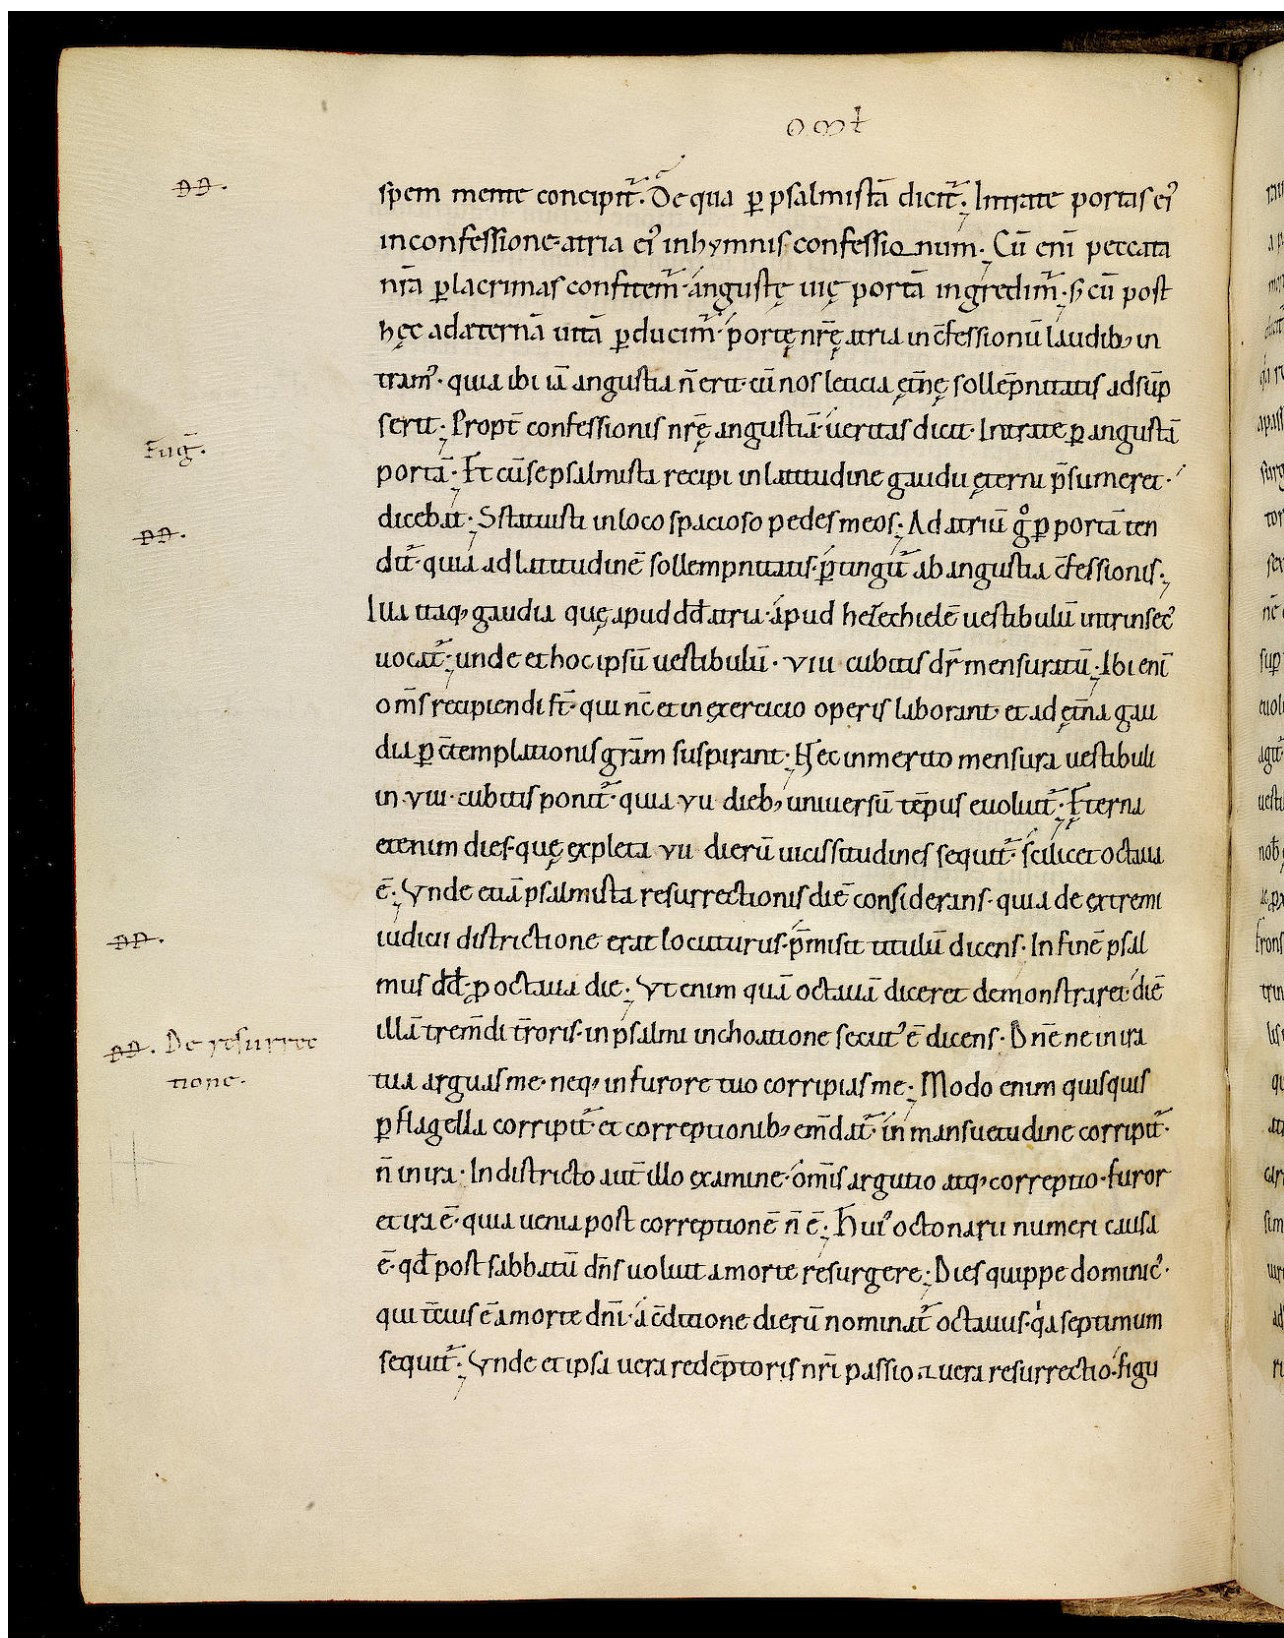 ōmt
đđ.
spem mente concipit᷑. De qua ꝑ psalmistā dicit᷑; Intrate portas eiꝰ
in confessione· atria eiꝰ in hymnis confessionum; Cū enī peccata
nrā ꝑ lacrimas confitem᷑· angustę uię portā ingredim᷑· s; cū post
hęc ad aternā uitā ꝑducim᷑· portę nrę̄ atria in c̄fessionū laudib; in
tramꝰ· quia ibi iā angustia n̄ erit· cū nos leticia ęt̄nę sollēpnitatis adsūp
serit; Propt̄ confessionis nrę̄ angustiā· ueritas dicit· Intrate ꝑ angustā
Euḡ.
portā; Et cū se psalmista recipi in latitudine gaudii ęterni p̄sumeret·
đđ.
dicebat; Statuisti in loco spacioso pedes meos; Ad atriū gͦ ꝑ portā ten
dit᷑· quia ad latitudinē sollempnitatis· ꝑtingit᷑ ab angustia c̄fessionis;
Iua itaq; gaudia quę apud dd̄ atria· apud hełechielē uestibulū intrinsecꝰ
uocat᷑; unde et hoc ipsū uestibulū· viii cubitis dr̄ mensuratū; Ibi enī
om̄s recipiendi st̄· qui nc̄ et in exercicio operis laborant· et ad ęt̄na gau
dia ꝑ c̄templationis grām suspirant; Hęc inmerito mensura uestibuli
in viii· cubitis ponit᷑· quia vii dieb; uniuersū tēpus euoluit᷑; Ęterna
etenim dies· quę expleta vii dierū uicissitudines sequit᷑· scilicet octaua
ē; Vnde etiā psalmista resurrectionis diē considerans· quia de extremi
đđ.
iudicii districtione erat locuturus· p̄misit titulū dicens· In finē psal
mus dd̄· ꝓ octaua die; Vt enim quā octauā diceret demonstraret· diē
đđ. De resurrec
illā trem̄di t̄roris· in psalmi inchoatione secutꝰ ē dicens· Dn̄e ne in ira
tione.
tua arguas me· neq; in furore tuo corripias me; Modo enim quisquis
ꝑ flagella corripit᷑· et correptionib; em̄dat᷑· in mansuetudine corripit᷑·
n̄ in ira· In districto aut̄ illo examine· om̄is argutio atq; correptio· furor
et ira ē· quia uenia post correptionē n̄ ē; Huiꝰ octonarii numeri causa
ē· qđ post sabbatū dn̄s uoluit a morte resurgere; Dies quippe dominicꝰ·
qui t̄cius ē a morte dn̄i· a c̄ditione dierū nominat᷑ octauus· qͥa septimum
sequit᷑; Vnde et ipsa uera redēptoris nrī passio ⁊ uera resurrectio· figu